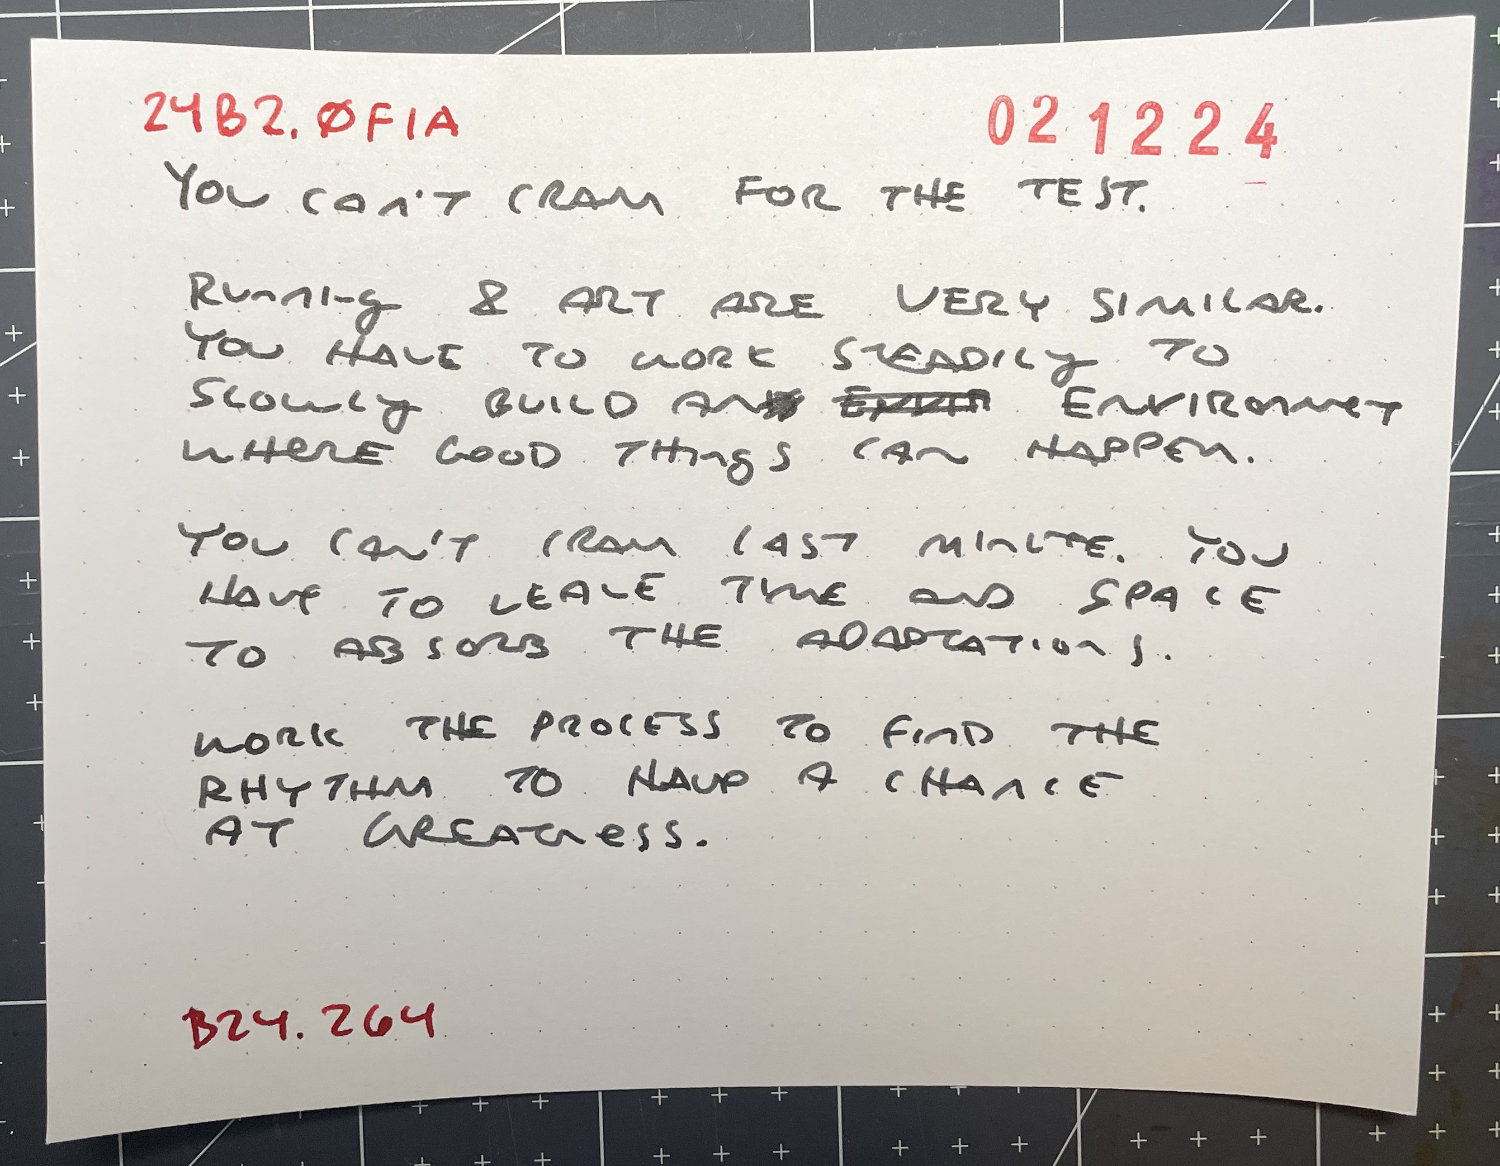 24B2.ØF1A
021224
You can't cram for the test.
Running & art are very similar.
You have to work steadily to
slowly build an environmet
where good things can happen.
You can't cram last minute. You
have to leave time and space
to absorb the adaptations.
Work the process to find the
rhythm to have a chance
at greatness.
B24.264